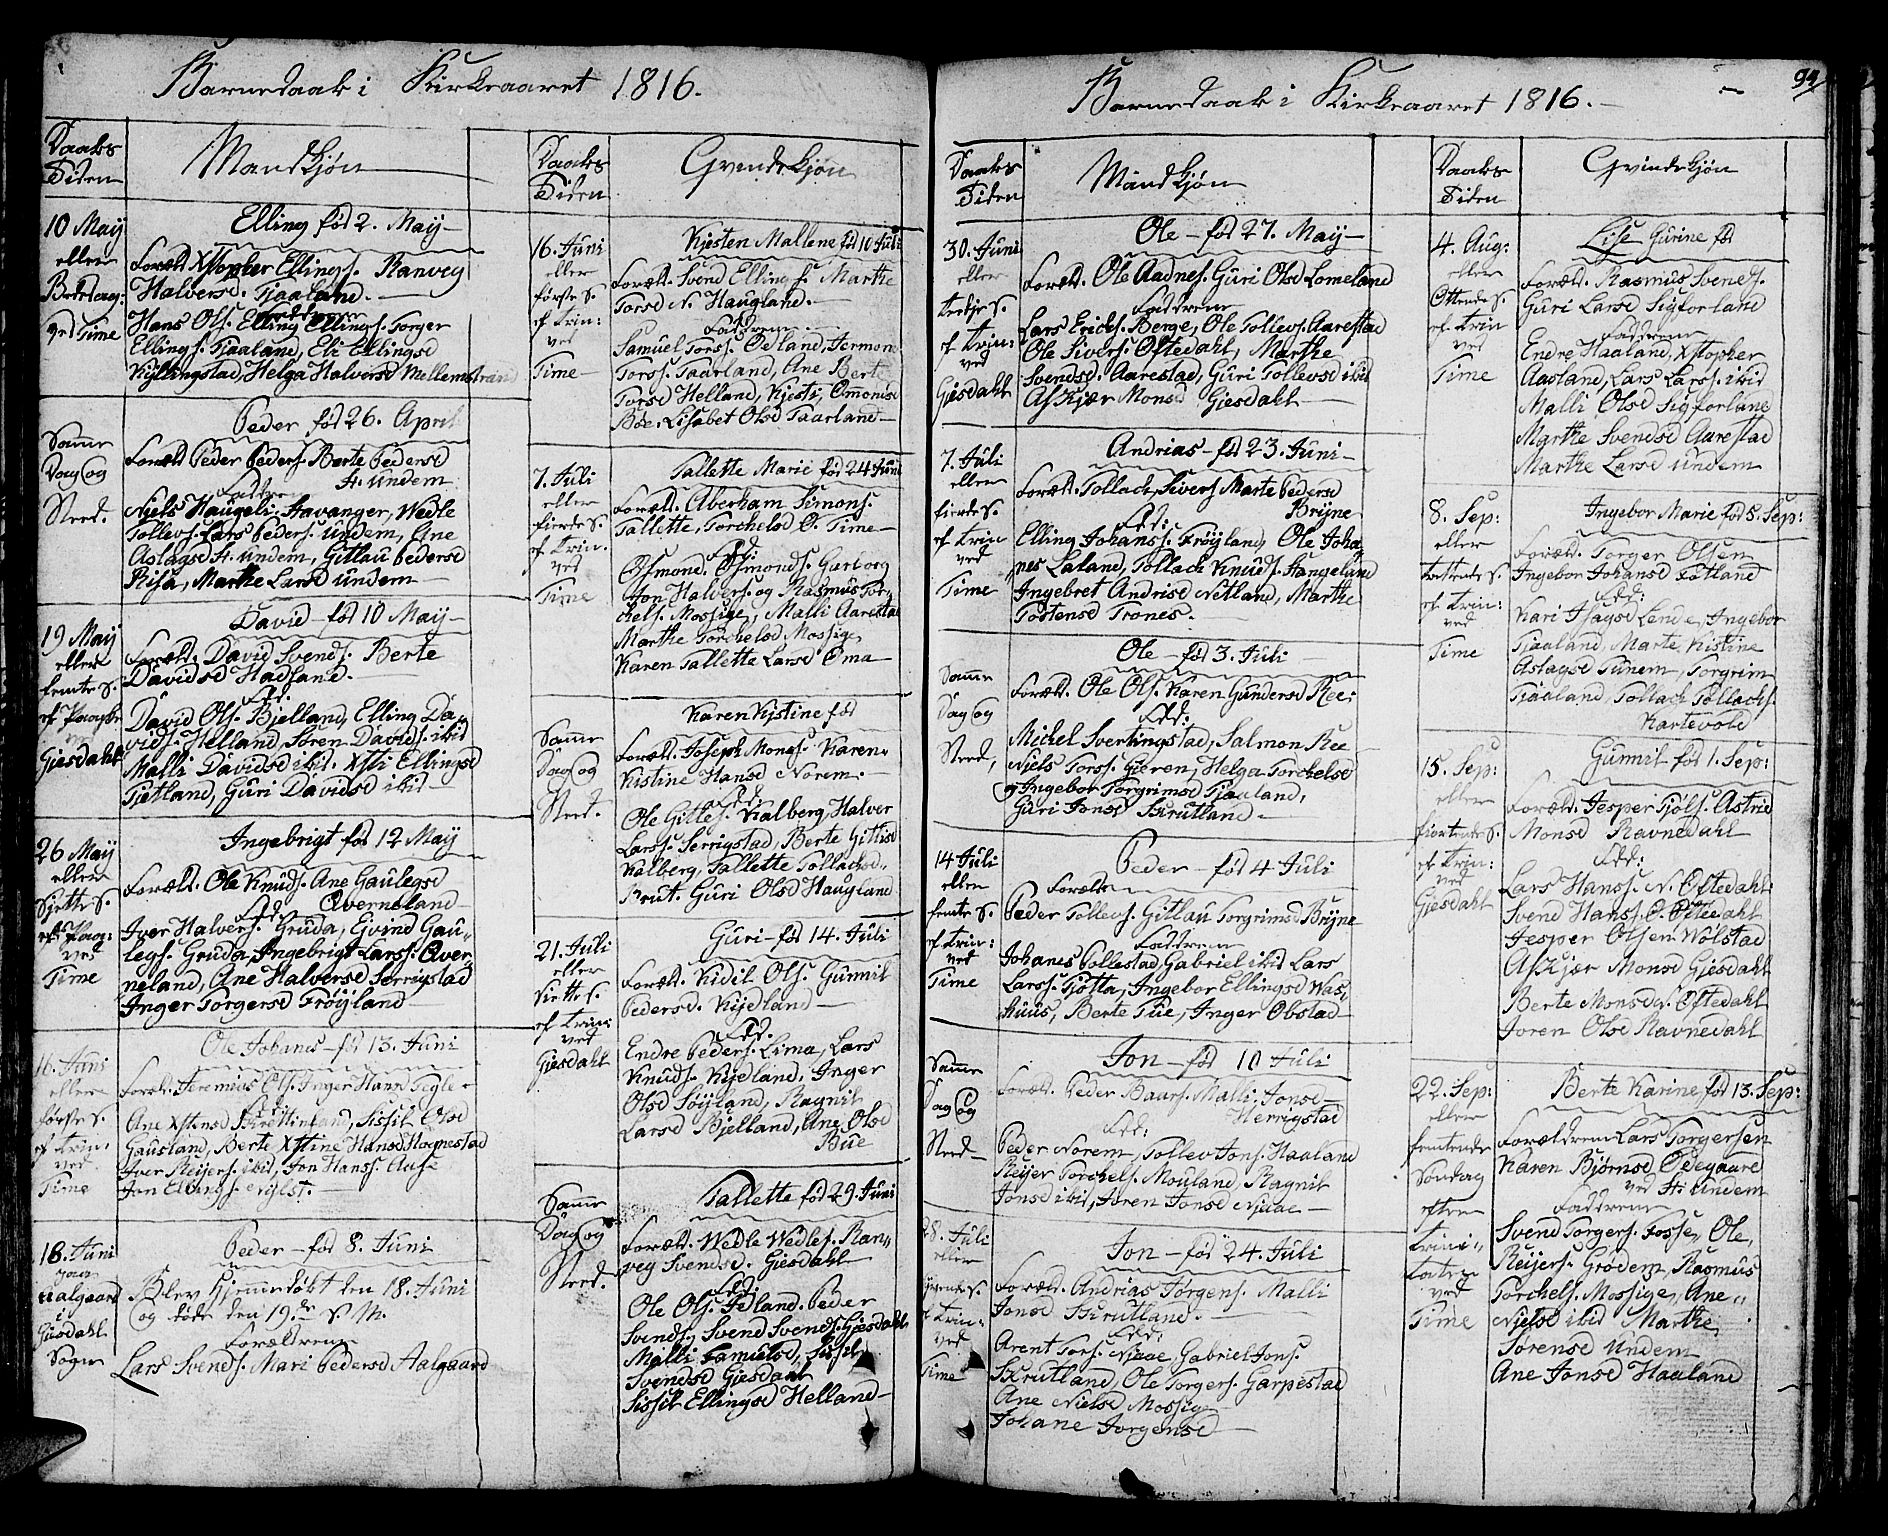 Barnedaab i Kirkeaaret 1816.
Daabs Tiden
Mandkjøn
10 May
eller
Bededag:
ved Time
Elling fød 2. May
Foræld. Xstopher Ellings. Ranvey
Halversd. Tjaaland.
Faddrene
Hans Ols. Elling Ellings. Torger
Ellings. Tjaaland, Eli Ellingsd
Kyllingstad, Helga Halversd Mellemstrand
Samme
Dag og
Sted.
Peder fød 26. April
Foræld Peder Peders. Berte Pedersd
H. Undem
Faddre
Niels Haugeli. Stavanger, Wedle
Tollevs. Lars Peders. Undem, Ane
Aslagsd H. Undem, Gitlau Pedersd
Risa, Marthe Larsd Undem
19 May
eller
femte S.
ef. Paaske
ved
Giesdahl
David fød 10 May
Foræld. David Svends. Berte
Davidsd Hadland.
Fdd:
David Ols. Bjelland, Elling Da-
vids. Helland, Søren Davids. ibid
Malli Davidsd ibid. Xsti Ellingsd
Tjetland, Guri Davidsd ibid
26 May
eller
Sjette S.
eft Paas:
ved
Time
Ingebrigt fød 12 May
Foræld. Ole Knuds. Ane Gaulegsd
Qverneland
Fdd:
Iver Halvers. Gruda, Ejvind Gau-
legs. Gruda, Ingebrigt Larss. Qver-
neland, Ane Halversd Serrigstad
Inger Torgersd Frøyland
16. Juni
eller
første S.
ef. Trin.
ved
Time
Ole Johanes fød 13. Juni
Foræld. Jeremias Ols. Inger Hansd Tegle
Ane Xstensd Skrettingland, Sissil Olsd
Gausland, Berte Xstine Hansd Hognestad
Iver Reijers. ibid, Jon Hanss. Aase
Jon Ellings. Nylst.
18. Juni
paa
Aalgaard
i
Giesdahl
Sogn
Peder fød 8. Juni
Blev Hjemmedøbt den 18. Juni
og døde den 19de S. M.
Forældrene
Lars Svends. Mari Pedersd Aalgaard
Daabs Tiden
Qvindekjøn
16. Juni
eller
første S.
ef Trin:
ved
Time
Kjesten Mallene fød 10 Juli
Foræld. Svend Ellings. Marthe
Torsd N. Haugland.
Faddrene
Samuel Torss. Ødland, Jermone
Torss. Taarland, Ane Bert
Torsd Helland, Kjesti Omonsd
Bøe. Lisabet Olsd Taarland
7. Juli
eller
fierde S.
ef Trin.
ved
Time
Tallette Marie fød 24 Juni
Foræld. Aberham Simons.
Tallette, Torchelsd O. Time
Fdd:
Osmond. Osmonds. Garborg
Jon Halvers. og Rasmus Tor-
chels. Mossige, Malli Aarestad
Marthe Torchelsd Mossige
Karen Tallette Larsd Oma
Samme
Dag og
Sted.
Karen Kjstine fød
Foræld. Joseph Mons. Karen
Kistine Hansd Norem.
Fdd:
Ole Gittes. Kalberg, Halver
Larss. Serrigstad, Berte Gittisd
Kalberg, Tallette Tollachsd
Brut. Guri Olsd Haugland
21. Juli
eller
siette S.
ef Trin:
ved
Giesdahl
Guri fød 14. Juli
Foræld. Kidil Ols. Gunnil
Pedersd. Kydland
Fdd.
Endre Peders. Lima, Lars
Knuds. Kydland, Inger
Olsd Søyland, Ragnil
Larsd Bjelland, Ane Olsd
Bue
Samme
Dag og
Sted.
Tallette fød 29. Juni
Foræld. Wedle Wedles. Ran-
vey Svendsd. Giesdahl
Fdd.
Ole Ols. Idland. Peder
Svends, Svend Svends. Giesdahl
Malli Samuelsd, Sissil
Svendsd Giesdahl
Sissil Ellingsd Helland
Barnedaab i Kirkeaaret 1816.
94
Daabs Tiden
Mandkjøn
30. Juni
eller
tredje S.
ef Trin:
ved
Giesdahl
Ole fød 27. May
Foræld. Ole Aadnes. Guri Olsd Lomeland
Faddrene
Lars Erichs. Berge, Ole Tollevs. Aarestad
Ole Sivers. Oftedahl, Marthe
Svendsd. Aarestad, Guri Tollevsd ibid
Askjær Monsd Giesdahl
7. Juli
eller
fierde S.
ef Trin
ved
Time
Andrias fød 23. Juni
Foræld. Tollach Sivers Marte Pedersd
Bryne
Fdd:
Elling Johanss. Frøyland, Ole Joha-
nes Laland, Tollach Knuds. Hangeland
Ingebret Andrisd Netland, Marthe
Tostensd Trones.
Samme
Dag og
Sted,
Ole fød 3. Juli
Foræld. Ole Ols. Karen Gundersd Ree:
Fdd:
Michel Svertingstad, Salmon Ree
Niels Torss. Gieren, Helga Torchelsd
og Ingebor Torgrimsd Tjaaland,
Guri Jonsd Skrutland.
14 Juli
eller
femte S.
ef Trin:
ved
Time
Peder fød 4 Juli
Foreldr
Peder Tollevs. Gitlau Torgrimsd Bryne
Faddrene
Johanes Pollestad, Gabriel ibid Lars
Larss. Tjøtta, Ingebor Ellingsd Was,
huus, Berte Tue, Inger Obstad
Samme
Dag og
Sted
Jon fød 10 Juli
Foræld. Peder Baars. Malli Jonsd
Herrigstad
Fdd:
Peder Norem, Tollev Jons. Haaland
Reijer Torchels. Mouland, Ragnil
Jonsd ibid, Joren Jonsd Njaae
28. Juli
eller
syvende S.
ef Trin:
ved
Time
Jon fød 24. Juli
Foræld. Andrias Jørgens. Malli
Jonsd Skrutland.
Fdd:
Arent Tors. Njaae, Gabriel Jons.
Skrutland, Ole Torgers. Garpestad
Ane Nielsd Mossige
Johane Jorgensd
Daabs Tiden
Qvindekjøn
4. Aug:
eller
Ottende S.
ef Trin
ved
Time
Lise Gurine fød
Foræld. Rasmus Svends.
Guri Larsd Sigforland
Faddrene
Endre Haaland, Xstopher
Aasland, Lars Larss. ibid
Malli Olsd Sigforlane
Marthe Svendsd Aarestad
Marthe Larsd Undem
8. Sep:
eller
trettende S.
ef Trin:
ved
Time
Ingebor Marie fød 5. Sep:
Foræld. Torger Olsen
Ingebor Johansd Fotland
Fdd:
Kari Isagsd Lende, Ingebor
Tjaaland, Marte Kistine
Aslagsd Tunem, Torgrim
Tjaaland, Tollach Tollachs.
Kartevold
15. Sep:
eller
fiortende S.
ef Trin:
ved
Giesdahl
Gunnil fød 1. Sep:
Foræld. Jesper Tjøls. Astrid
Monsd Ravnedahl
Fdd:
Lars Hanss. N. Oftedahl
Svend Hanss. O. Oftedahl
Jesper Olsen Wolstad
Askjær Monsd Giesdahl
Berte Monsd N. Oftedahl
Joren Olsd Ravnedahl
22. Sep:
eller
femtende
Søndag
efter
Trini-
taten
ved
Time
Berte Karine fød 13. Sep:
Forældrene Lars Torgersen
Karen Bjørnsd Ødegaard
ved H. Undem
Faddrene
Svend Torgers. Fosse, Ole,
Reijers. Grødem, Rasmus
Torchels. Mossige, Ane
Nielsd ibid Marthe
Sørensd Undem
Ane Jonsd Haaland